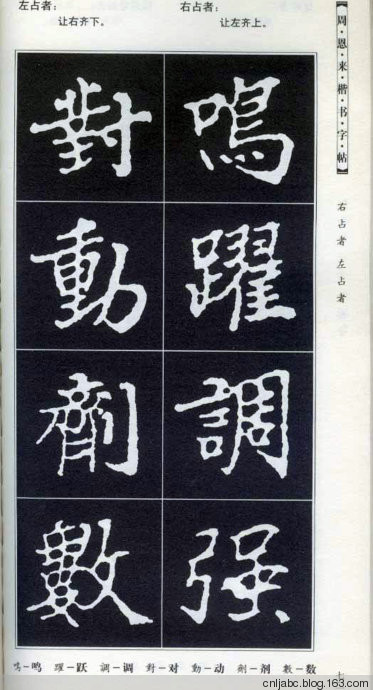 左占者：
让右齐下。
右占者：
让左齐上。
【周·恩·来·楷·书·字·帖】
右占者 左占者
鳴 躍 調 强
對 動 劑 數
鸣－鸣 躍－跃 調－调 對－对 動－动 劑－剂 數－数
cnljabc.blog.163.com